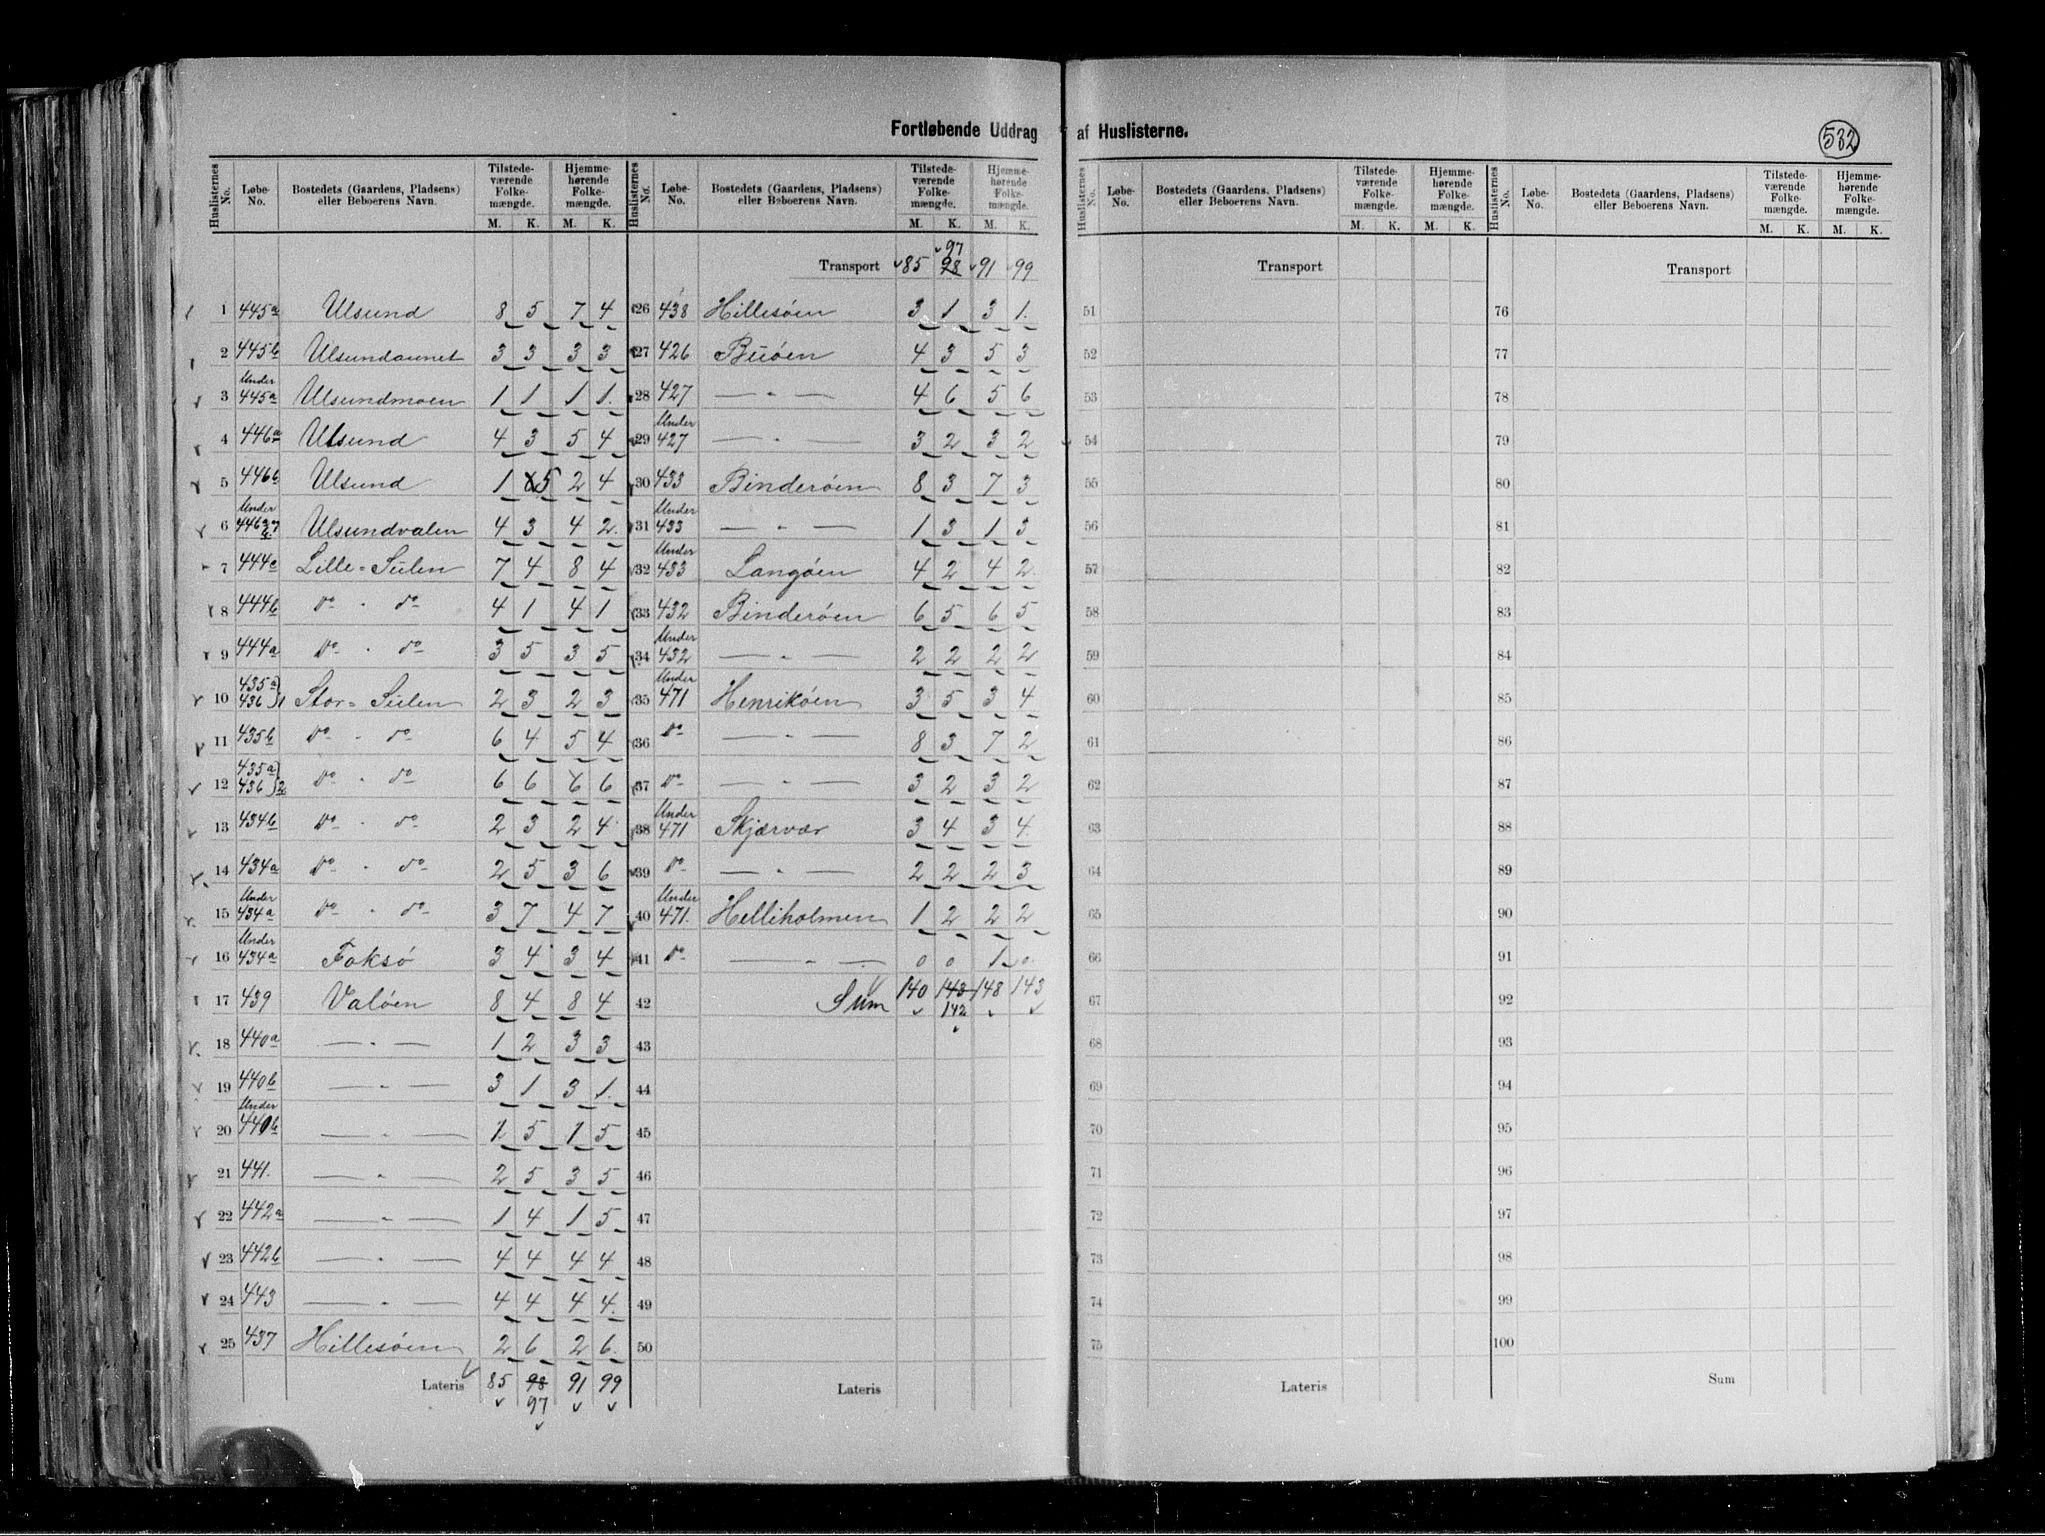 Fortløbende Uddrag af Huslisterne.
532
Huslisternes No. Løbe-No. Bostedets (Gaardens, Pladsens) eller Beboerens Navn. Tilstedeværende Folkemængde. M. K. Hjemmehørende Folkemængde. M. K.
1 445a Ulsund 8 5 7 4
2 445b Ulsundaunet 3 3 3 3
3 Under 445a Ulsundmoen 1 1 1 1.
4 446a Ulsund 4 3 5 4
5 446b Ulsund 1 5 2 4
6 Under Ulsundvalen 4 3 4 2.
7 444c Lille-Sülen 7 4 8 4
8 444b do - do 4 1 4 1
9 444a do - do 3 5 3 5
10 435a 436 }1 Stor-Sülen 2 3 2 3
11 435b do - do 6 4 5 4
12 435a 436 }2 do - do 6 6 6 6
13 434b do - do 2 3 2 4
14 434a do - do 2 5 3 6
15 Under 434a do - do 3 7 4 7
16 Under 434a Foksö 3 4 3 4
17 439 Valöen 8 4 8 4
18 440a — " — 1 2 3 3
19 440b — " — 3 1 3 1.
20 Under 440b — " — 1 5 1 5
21 441. — " — 2 5 3 5
22 442a — " — 1 4 1 5
23 442b — " — 4 4 4 4
24 443 — " — 4 4 4 4.
25 437 Hillesöen 2 6 2 6.
Lateris 85 98 91 99
97
Huslisternes No. Løbe-No. Bostedets (Gaardens, Pladsens) eller Beboerens Navn. Tilstedeværende Folkemængde. M. K. Hjemmehørende Folkemængde. M. K.
97
Transport 85 98 91 99
26 438 Hillesöen 3 1 3 1.
27 426 Buöen 4 3 5 3
28 427 — " — 4 6 5 6
29 Under 427 — " — 3 2 3 2
30 433 Binderöen 8 3 7 3
31 Under 433 — " — 1 3 1 3
32 Under 433 Langöen 4 2 4 2
33 432 Binderöen 6 5 6 5
34 Under 432 — " — 2 2 2 2
35 Under 471 Henriköen 3 5 3 4
36 do — " — 8 3 7 2
37 do — " — 3 2 3 2
38 Under 471 Skjærvær 3 4 3 4.
39 do — " — 2 2 2 3
40 Under 471. Helliholmen 1 2 2 2
41 do — " — 0 0 1 0.
42 Sum 140 143 148 143
142
43
44
45
46
47
48
49
50
Lateris
Huslisternes No. Løbe-No. Bostedets (Gaardens, Pladsens) eller Beboerens Navn. Tilstedeværende Folkemængde. M. K. Hjemmehørende Folkemængde. M. K.
Transport
51
52
53
54
55
56
57
58
59
60
61
62
63
64
65
66
67
68
69
70
71
72
73
74
75
Lateris
Huslisternes No. Løbe-No. Bostedets (Gaardens, Pladsens) eller Beboerens Navn. Tilstedeværende Folkemængde. M. K. Hjemmehørende Folkemængde. M. K.
Transport
76
77
78
79
80
81
82
83
84
85
86
87
88
89
90
91
92
93
94
95
96
97
98
99
100
Sum